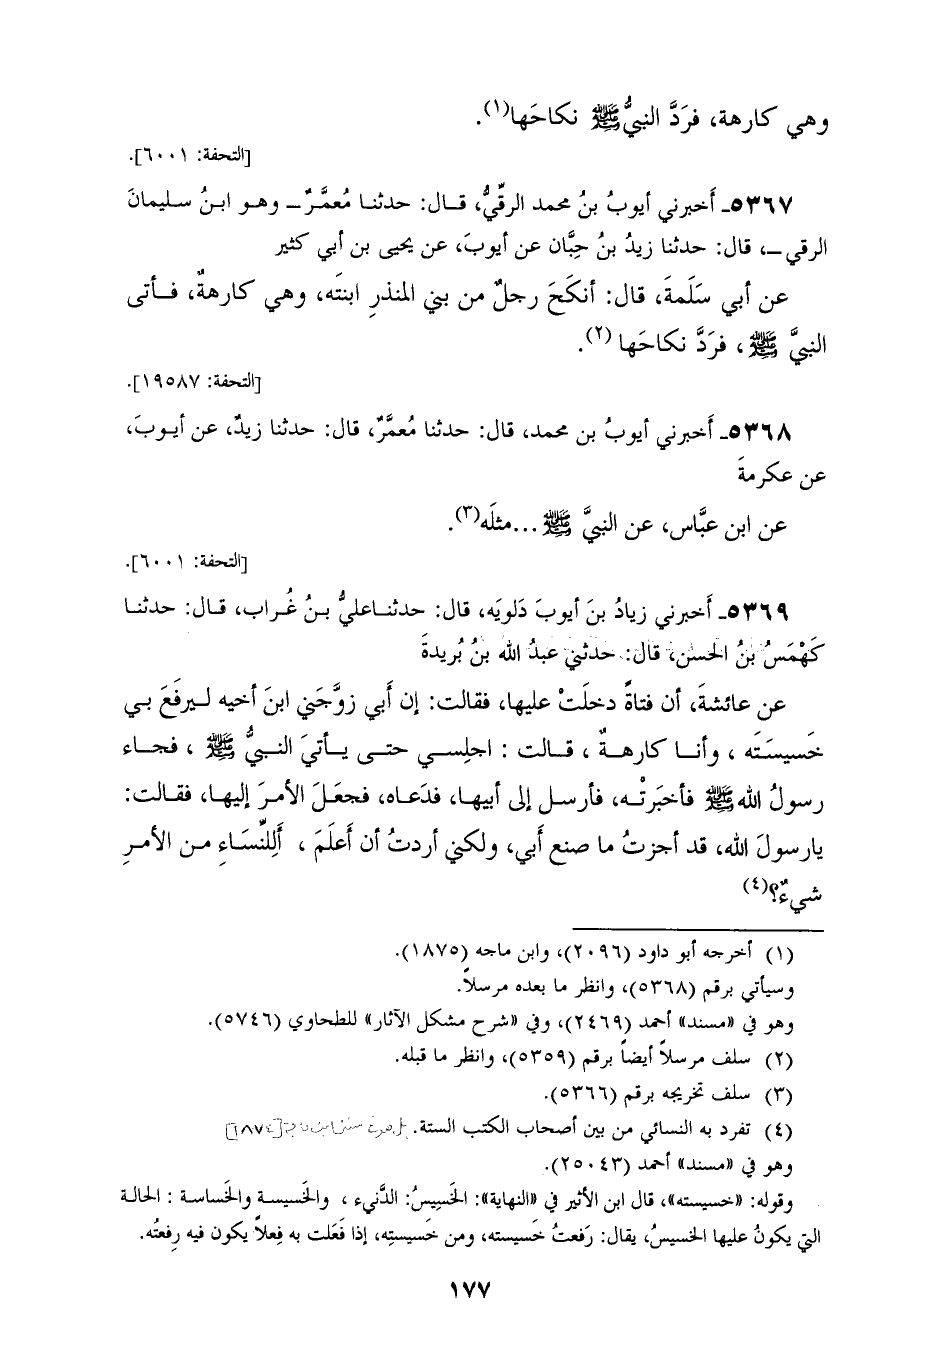 وهي كارهة، فرَدَّ النبيُّ ﷺ نكاحَها(١).
[التحفة: ٦٠٠١].
٥٣٦٧ـ أَخبرني أيوبُ بنُ محمد الرقِّيُّ، قال: حدثنا مُعمَّرٌ ـ وهو ابنُ سليمانَ
الرقي ـ، قال: حدثنا زيدُ بنُ حِبَّان عن أيوبَ، عن يحيى بن أبي كثير
عن أبي سَلَمةَ، قال: أنكَحَ رجلٌ من بني المنذرِ ابنتَه، وهي كارهةٌ، فأتى
النبيَّ ﷺ، فرَدَّ نكاحَها (٢).
[التحفة: ١٩٥٨٧].
٥٣٦٨ـ أَخبرني أيوبُ بن محمد، قال: حدثنا مُعمَّرٌ، قال: حدثنا زيدٌ، عن أيوبَ،
عن عكرمةَ
عن ابن عبَّاس، عن النبيَّ ﷺ...مثلَه(٣).
[التحفة: ٦٠٠١].
٥٣٦٩ـ أَخبرني زيادُ بنَ أيوبَ دَلويَه، قال: حدثنا عليُّ بنُ غُراب، قال: حدثنا
كَهْمَسُ بنُ الحسن، قال: حدثني عبدُ الله بنُ بُريدةَ
عن عائشةَ، أن فتاةً دخلَتْ عليها، فقالت: إن أَبي زوَّجَني ابنَ أخيه ليرفَعَ بي
خَسيسَتَه ، وأنا كارهةٌ ، قالت : اجلِسي حتى يأتيَ النبيُّ ﷺ ، فجاء
رسولُ الله ﷺ فأخبَرتْه، فأرسل إلى أبيها، فدَعاه، فجعَلَ الأمرَ إليها، فقالت:
يارسولَ الله، قد أجزتُ ما صنع أَبي، ولكني أردتُ أن أَعلَمَ ، أَلِلنِّسَاءِ من الأمرِ
شيءٌ؟(٤)
(١) أخرجه أبو داود (٢٠٩٦)، وابن ماجه (١٨٧٥).
وسيأتي برقم (٥٣٦٨)، وانظر ما بعده مرسلاً.
وهو في «مسند» أحمد (٢٤٦٩)، وفي «شرح مشكل الآثار» للطحاوي (٥٧٤٦).
(٢) سلف مرسلاً أيضاً برقم (٥٣٥٩)، وانظر ما قبله.
(٣) سلف تخريجه برقم (٥٣٦٦).
(٤) تفرد به النسائي من بين أصحاب الكتب الستة. [١٨٧٤]
وهو في «مسند» أحمد (٢٥٠٤٣).
وقوله: «خسيسته»، قال ابن الأثير في «النهاية»: الخَسِيسُ: الدَّنيء ، والخَسيسة والخَساسة : الحالة
التي يكونُ عليها الخسيسُ، يقال: رَفعتُ خَسيسته، ومن خَسيستِه، إذا فَعَلت به فِعلاً يكون فيه رِفعتُه.
١٧٧